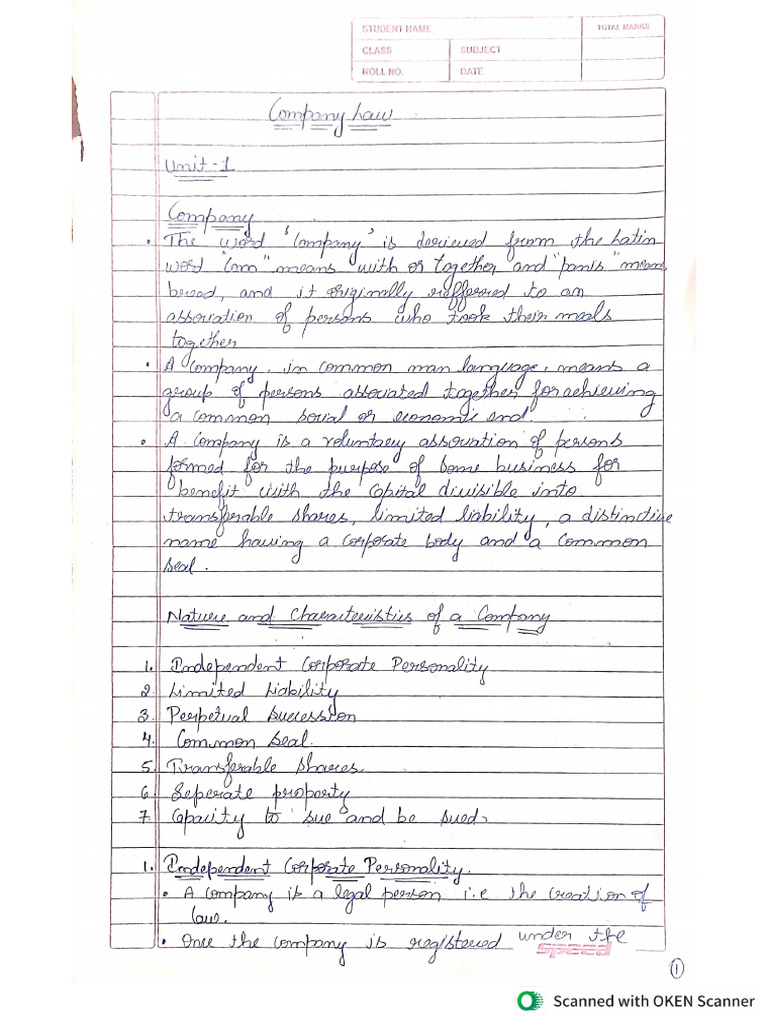 STUDENT NAME
TOTAL MARKS
CLASS
SUBJECT
ROLL NO.
DATE
Company Law
Unit - 1
Company
• The word "Company" is derieved from the Latin
word "Com" means with or together and "panis" means
bread, and it originally reffered to an
association of persons who took their meals
together
• A Company, in common man language, means a
group of persons associated together for achieving
a common social or economic end.
• A Company is a voluntary association of persons
formed for the purpose of some business for
benefit with the Capital divisible into
transferable shares, limited liability, a distinctive
name having a corporate body and a common
seal.
Nature and Characteristics of a Company
1. Independent Corporate Personality
2. Limited Liability
3. Perpetual succession
4. Common seal.
5. Transferable shares.
6. Seperate property
7. Capacity to sue and be sued.
1. Independent Corporate Personality.
• A company is a legal person i.e the creation of
law.
• Once the company is registered under the
speed
1
Scanned with OKEN Scanner